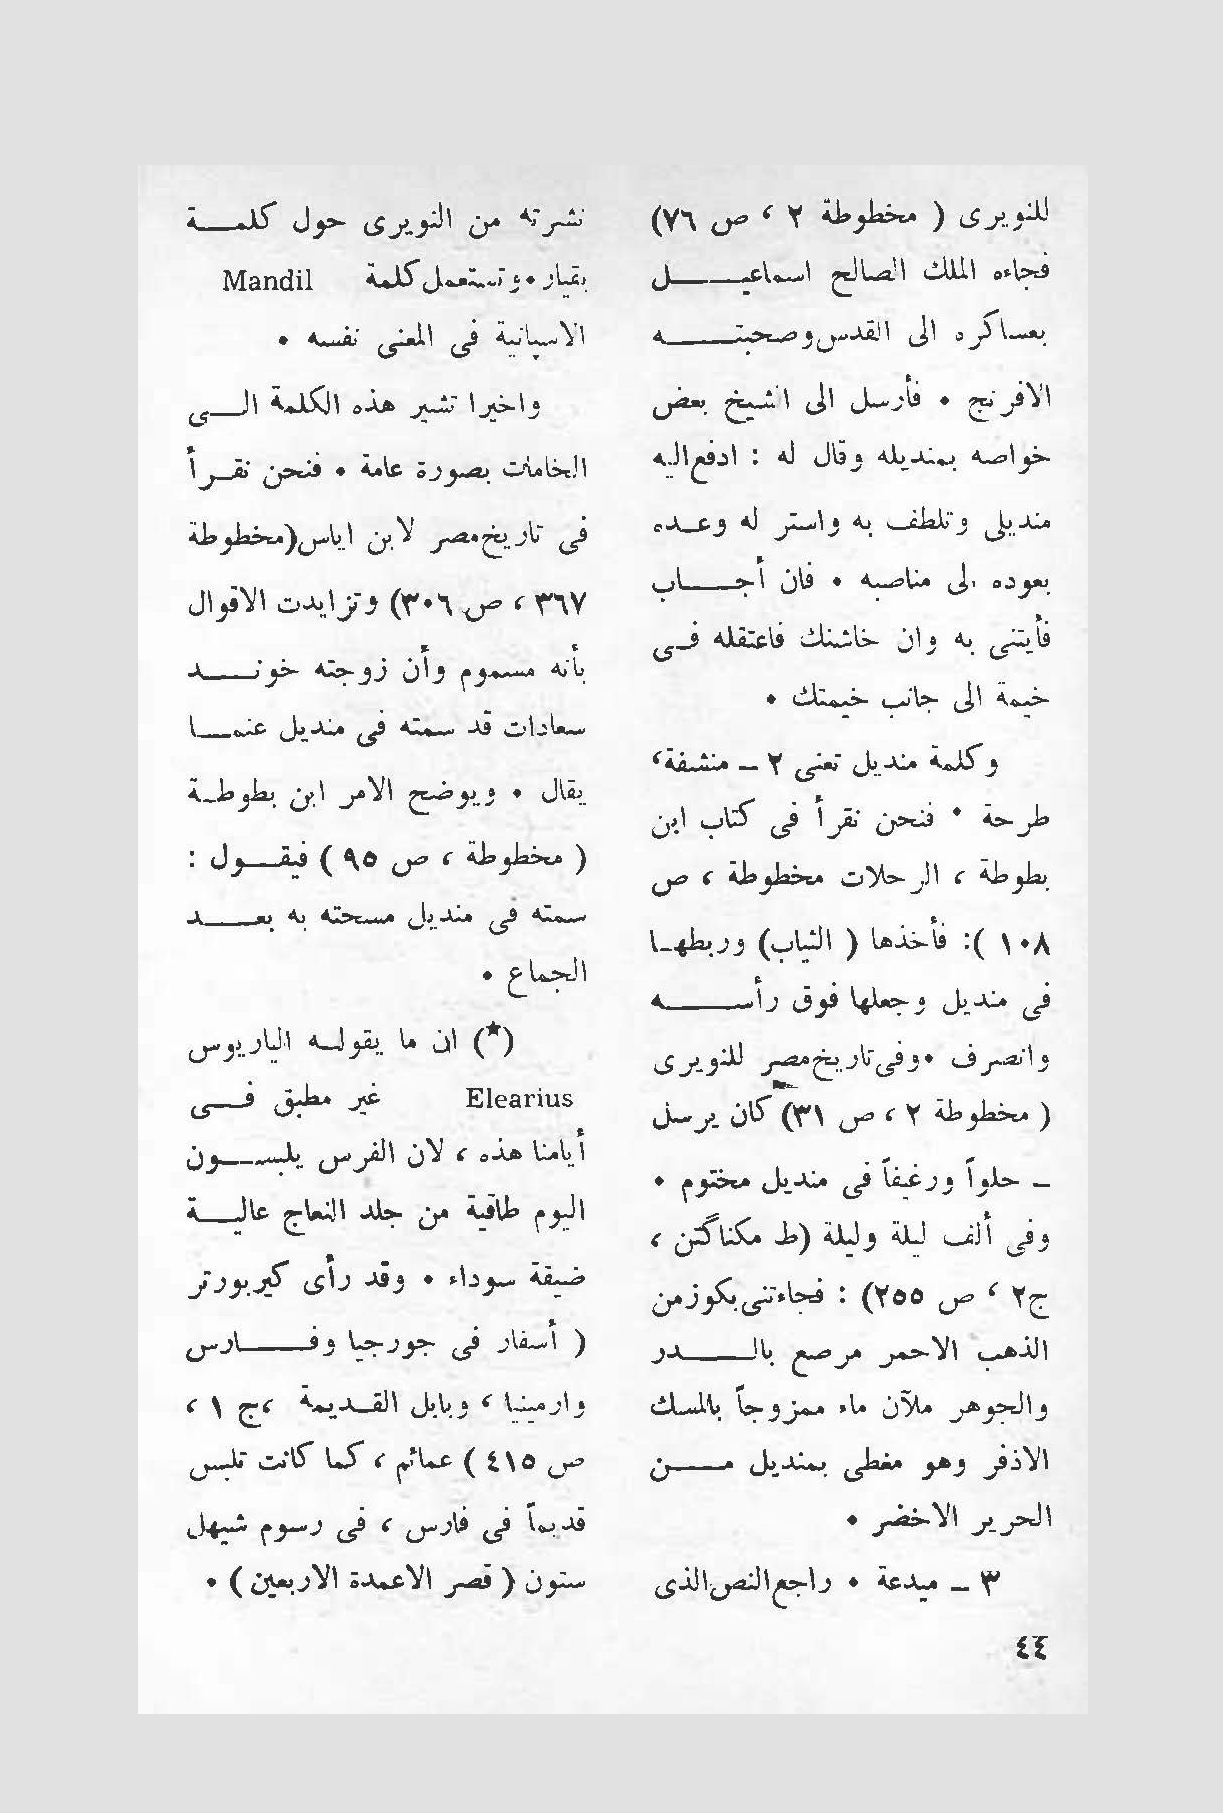 للنويرى ( مخطوطة ٢ ، ص ٧٦)
فجاءه الملك الصالح اسماعيل
بعساكره الى القدس وصحبته
الافرنج • فأرسل الى الشيخ بعض
خواصه بمنديله وقال له : ادفع اليه
منديلى وتلطف به واستر له وعده
بعوده الى مناصبه • فان أجاب
فأيتنى به وان خاشنك فاعتقله فى
خيمة الى جانب خيمتك •
وكلمة منديل تعنى ٢ ــ منشفة،
طرحة • فنحن نقرأ فى كتاب ابن
بطوطة ، الرحلات مخطوطة ، ص
١٠٨ ): فأخذها ( الثياب) وربطها
فى منديل وجعلها فوق رأسه
وانصرف •وفى تاريخ مصر للنويرى
( مخطوطة ٢ ، ص ٣١) كان يرسل
ــ حلواً ورغيفاً فى منديل مختوم •
وفى ألف ليلة وليلة (ط مكناگتن ،
ج٢ ، ص ٢٥٥) : فجاءتنى بكوز من
الذهب الاحمر مرصع بالدر
والجوهر ملآن ماء ممزوجاً بالمسك
الاذفر وهو مغطى بمنديل من
الحرير الاخضر •
٣ ــ ميدعة • راجع النص الذى
نشرته من النويرى حول كلمة
بقيار •وتستعمل كلمة Mandil
الاسپانية فى المعنى نفسه •
واخيرا تشير هذه الكلمة الى
الخامات بصورة عامة • فنحن نقرأ
فى تاريخ مصر لابن اياس(مخطوطة
٣٦٧ ، ص ٣٠٦) وتزايدت الاقوال
بأنه مسموم وأن زوجته خوند
سعادات قد سمته فى منديل عنما
يقال • ويوضح الامر ابن بطوطة
( مخطوطة ، ص ٩٥ ) فيقول :
سمته فى منديل مسحته به بعد
الجماع •
(★) ان ما يقوله الياريوس
Elearius غير مطبق فى
أيامنا هذه ، لان الفرس يلبسون
اليوم طاقية من جلد النعاج عالية
ضيقة سوداء • وقد رأى كيربورتر
( أسفار فى جورجيا وفارس
وارمينيا ، وبابل القديمة ،ج ١ ،
ص ٤١٥ ) عمائم ، كما كانت تلبس
قديماً فى فارس ، فى رسوم شيهل
ستون ( قصر الاعمدة الاربعين ) •
٤٤